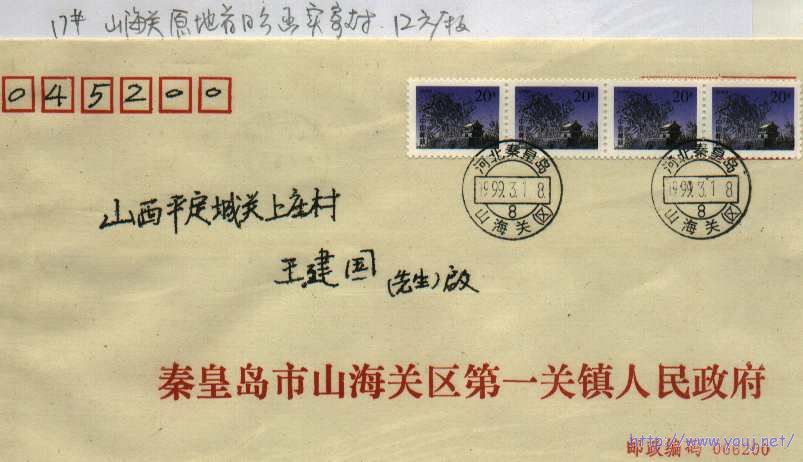 17# 山海关原地首日公函实寄封. 12元/枚
045200
20分 20分 20分 20分
河北秦皇岛
1999.3.1 8
8
山海关(区)
河北秦皇岛
1999.3.1 8
8
山海关(区)
山西平定城关上庄村
王建国(先生)启
秦皇岛市山海关区第一关镇人民政府
邮政编码 066200
http://www.youj.net/